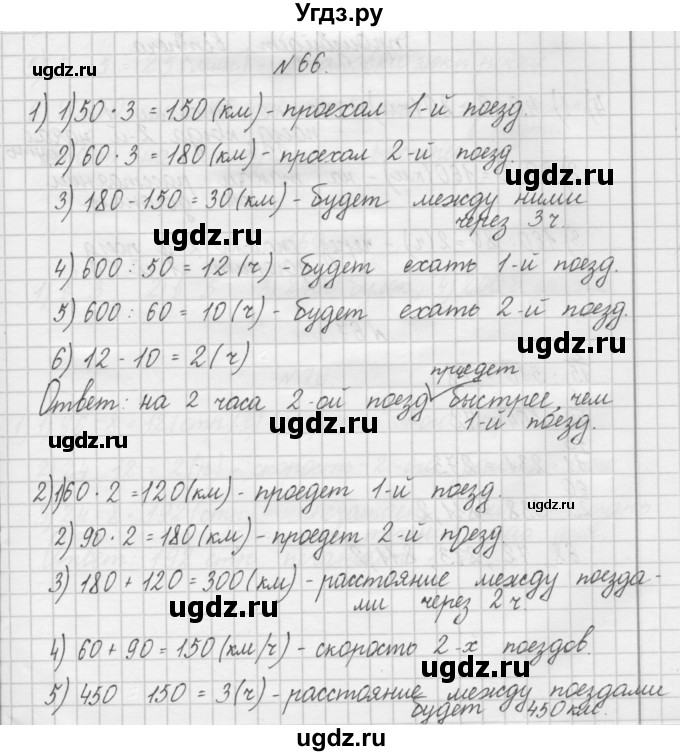 Угдз.ру
№66.
1) 1) 50 · 3 = 150 (км) - проехал 1-й поезд.
2) 60 · 3 = 180 (км) - проехал 2-й поезд.
3) 180 - 150 = 30 (км) - будет между ними
через 3ч.
4) 600 : 50 = 12 (ч) - будет ехать 1-й поезд.
5) 600 : 60 = 10 (ч) - будет ехать 2-й поезд.
6) 12 - 10 = 2 (ч)
приедет
Ответ: на 2 часа 2-ой поезд быстрее, чем
1-й поезд.
2) 1) 60 · 2 = 120 (км) - проедет 1-й поезд.
2) 90 · 2 = 180 (км) - проедет 2-й поезд.
3) 180 + 120 = 300 (км) - расстояние между поезда-
ми через 2 ч.
4) 60 + 90 = 150 (км/ч) - скорость 2-х поездов.
5) 450 150 = 3 (ч) - расстояние между поездами
будет 450 км.
ugdz.ru
ugdz.ru
ugdz.ru
ugdz.ru
ugdz.ru
ugdz.ru
ugdz.ru
ugdz.ru
ugdz.ru
ugdz.ru
ugdz.ru